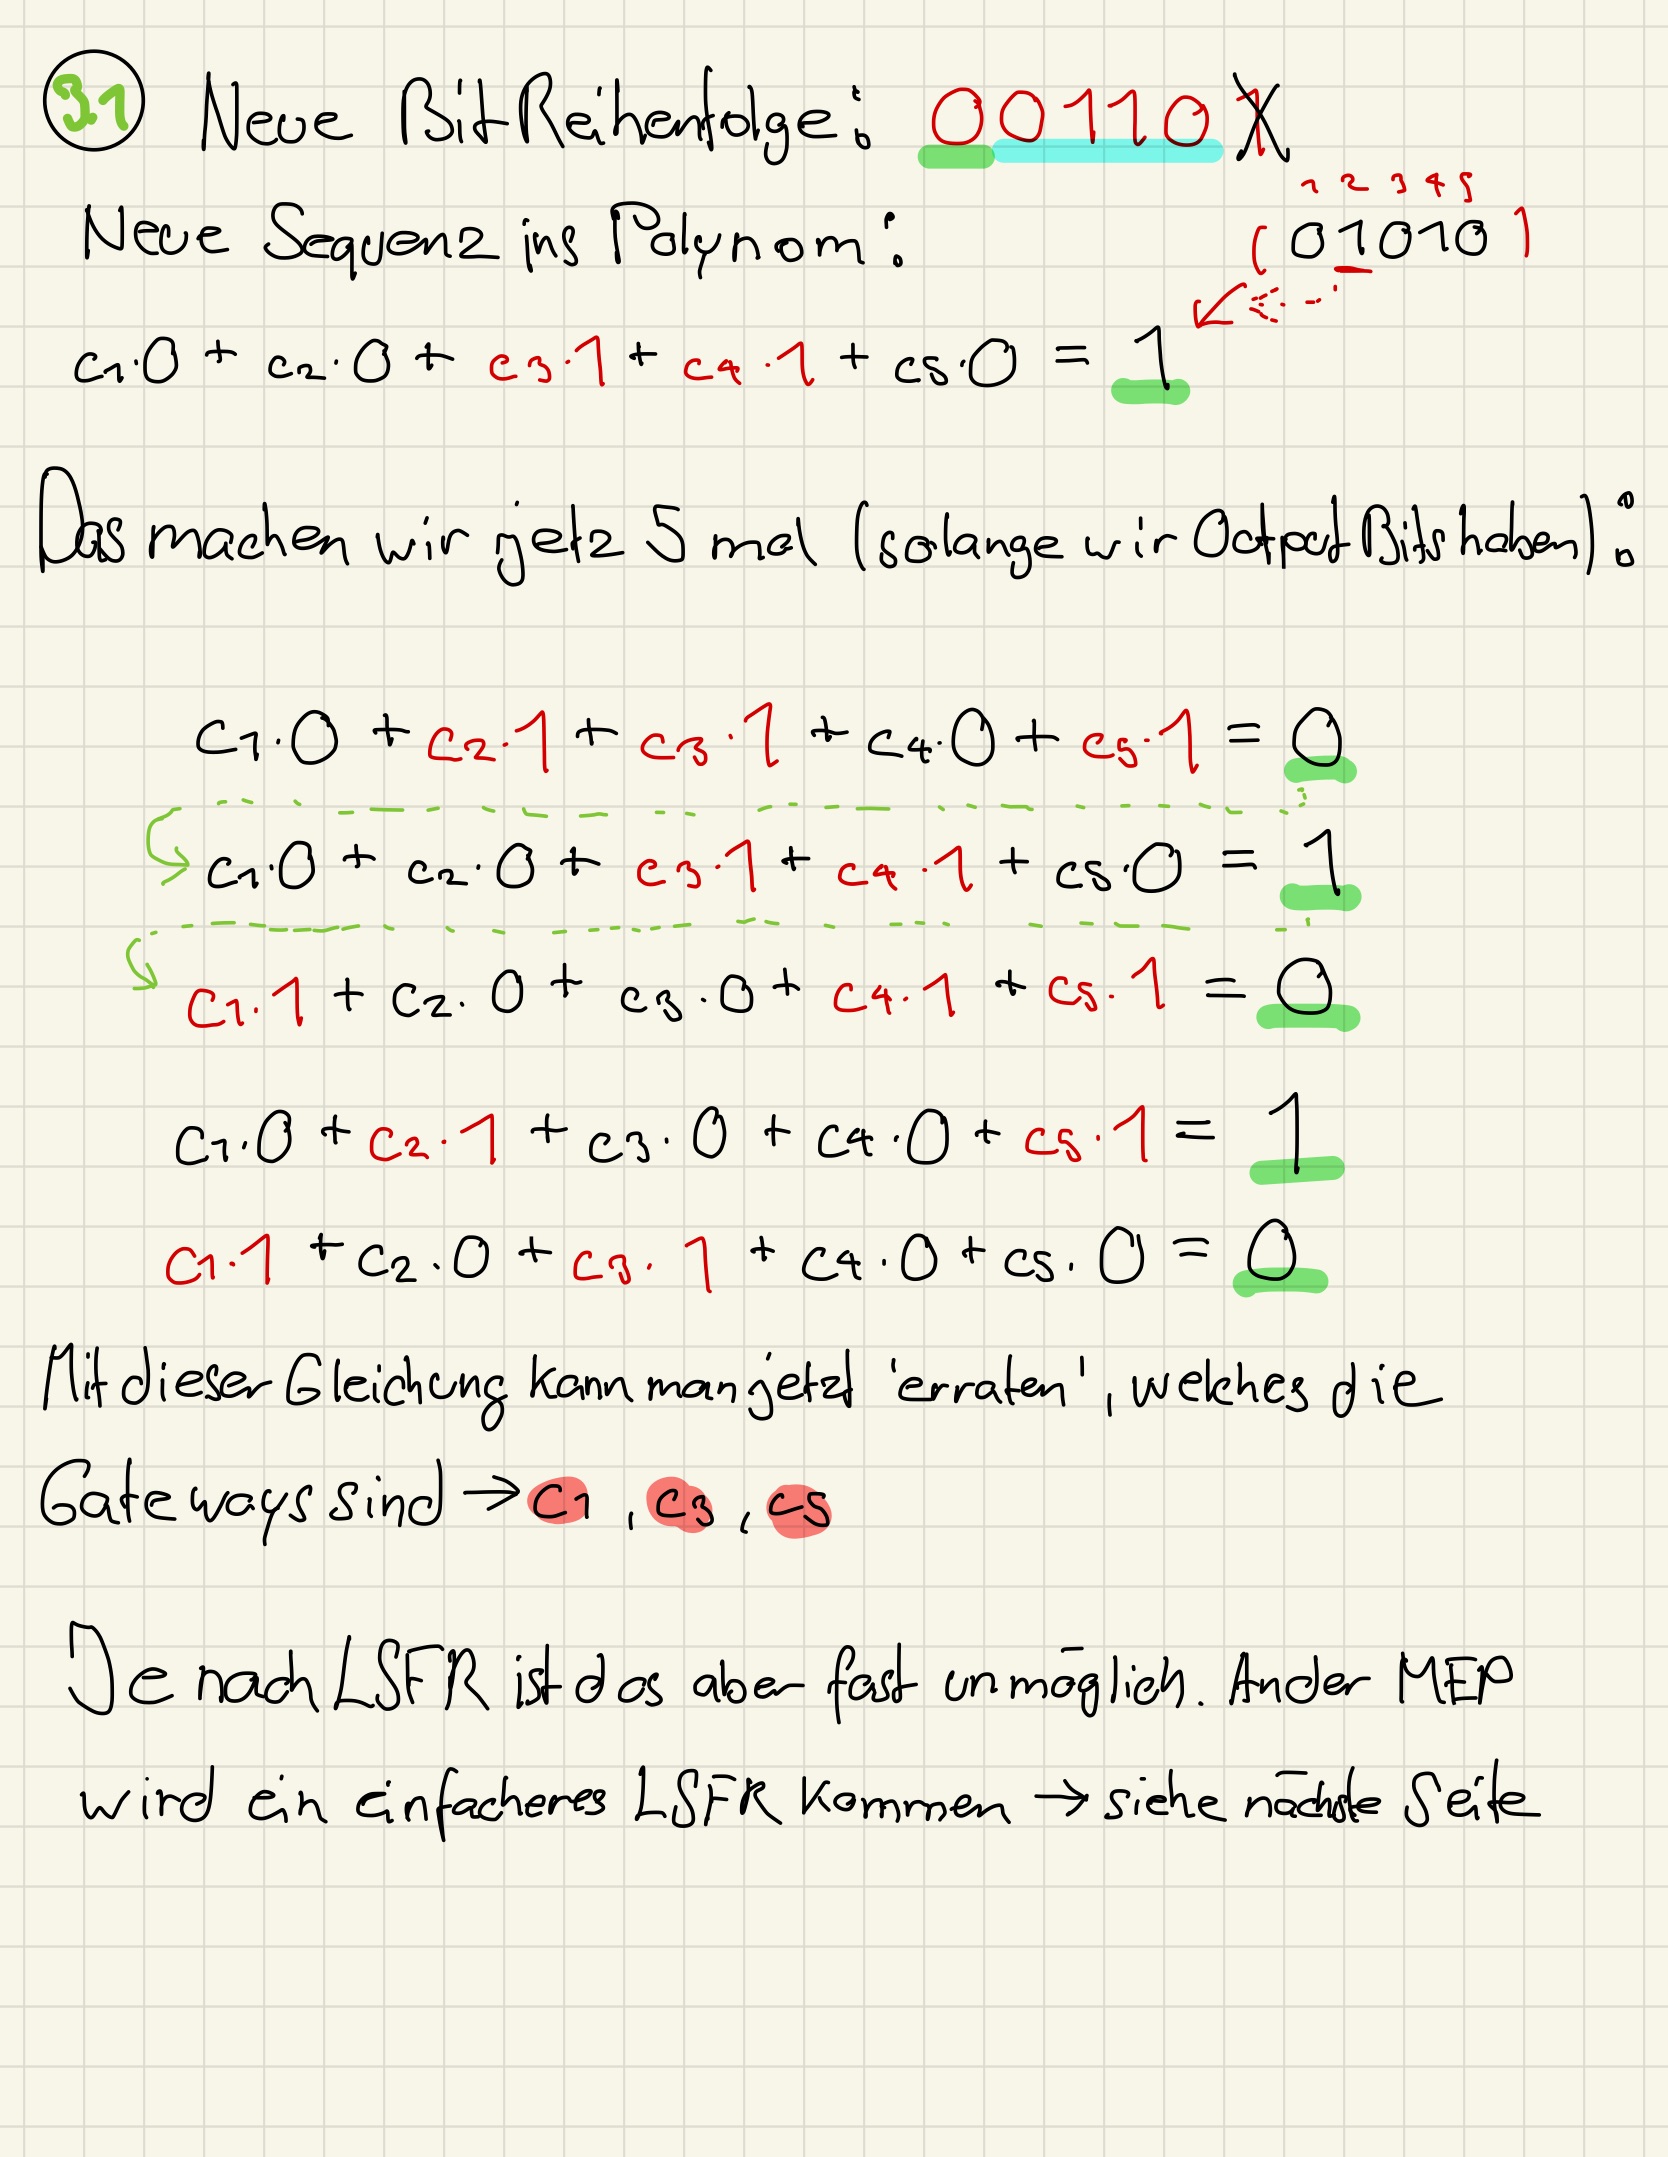 3.1 Neue BitReihenfolge: 00110 1
1 2 3 4 5
Neue Sequenz ins Polynom: (01010)
c1·0 + c2·0 + c3·1 + c4·1 + c5·0 = 1
Das machen wir jetz 5 mal (solange wir Output Bits haben):
c1·0 + c2·1 + c3·1 + c4·0 + c5·1 = 0
c1·0 + c2·0 + c3·1 + c4·1 + c5·0 = 1
c1·1 + c2·0 + c3·0 + c4·1 + c5·1 = 0
c1·0 + c2·1 + c3·0 + c4·0 + c5·1 = 1
c1·1 + c2·0 + c3·1 + c4·0 + c5·0 = 0
Mit dieser Gleichung kann man jetzt 'erraten', welches die
Gateways sind → c1, c3, c5
Je nach LSFR ist das aber fast unmöglich. An der MEP
wird ein einfacheres LSFR kommen → siehe nächste Seite